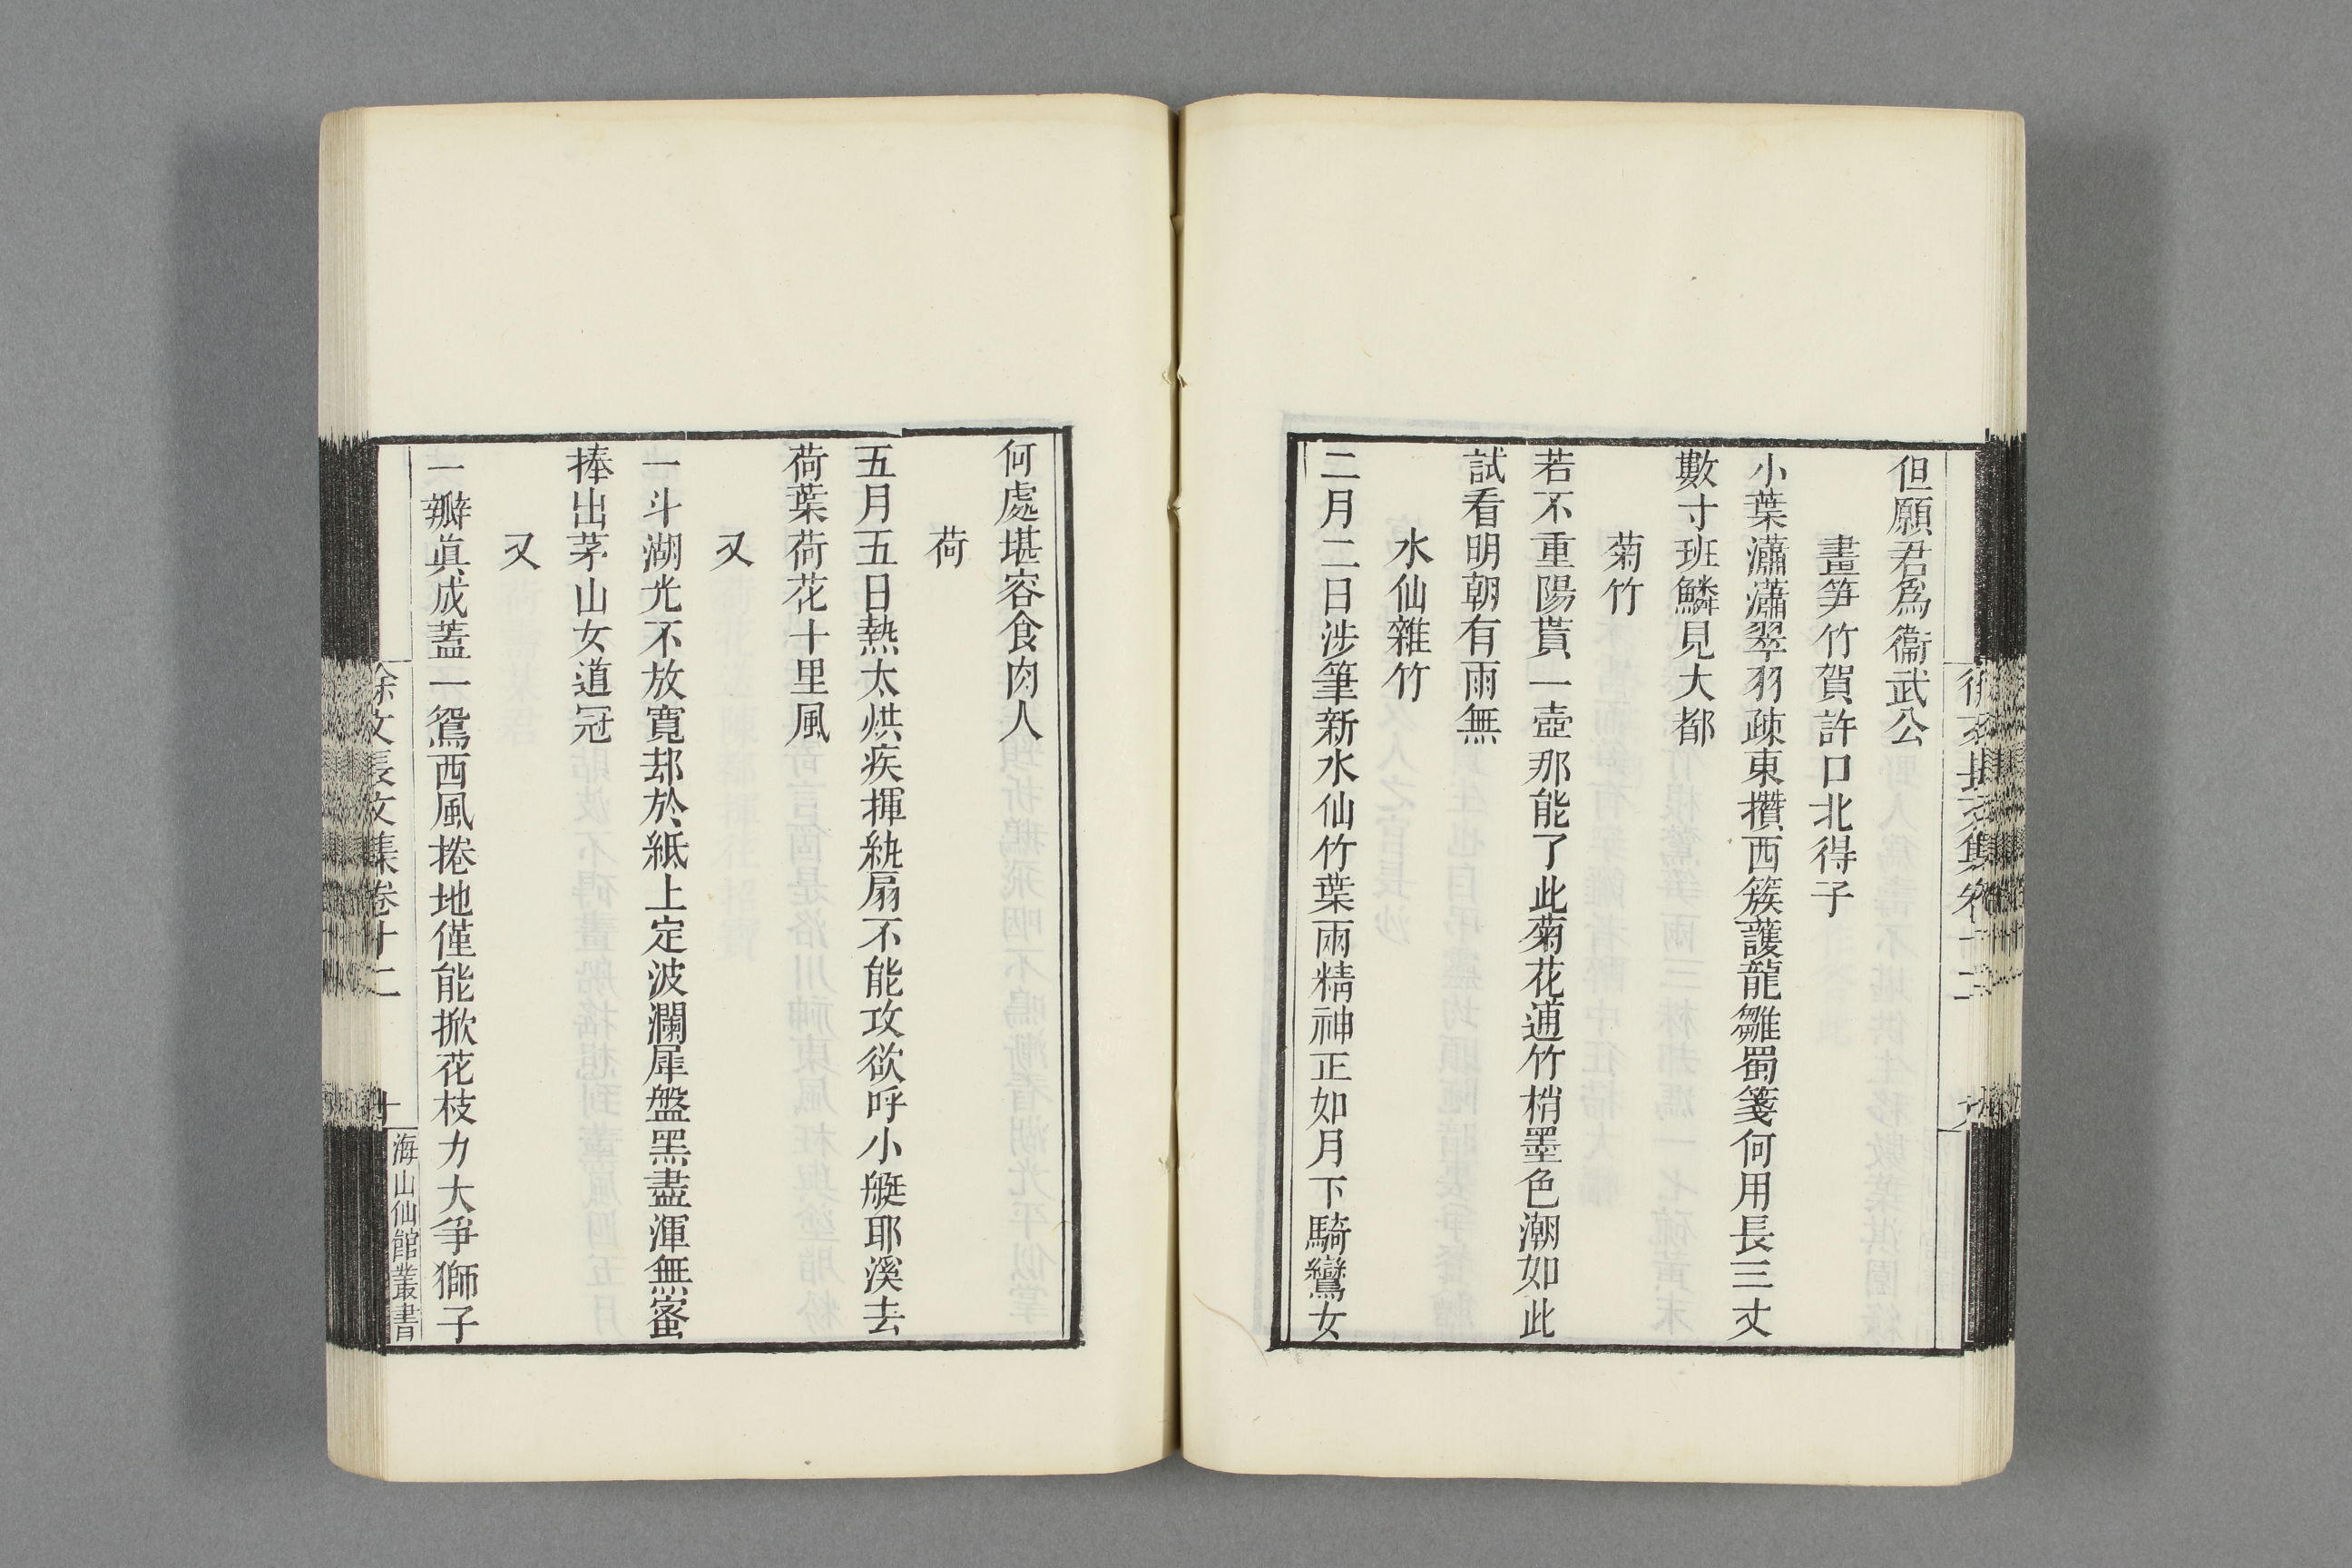 但願君爲衞武公
畫笋竹賀許口北得子
小葉瀟瀟翠羽疎東攢西簇護龍雛蜀箋何用長三丈
數寸班鱗見大都
菊竹
若不重陽貰一壺那能了此菊花逋竹梢墨色潮如此
試看明朝有雨無
水仙雜竹
二月二日涉筆新水仙竹葉兩精神正如月下騎鸞女
何處堪容食肉人
荷
五月五日熱太烘疾揮紈扇不能攻欲呼小艇耶溪去
荷葉荷花十里風
又
一斗湖光不放寬却於紙上定波瀾犀盤黑盡渾無蜜
捧出茅山女道冠
又
一瓣眞成蓋一鴛西風捲地僅能掀花枝力大爭獅子
徐文長文集卷十二
十
海山仙館叢書